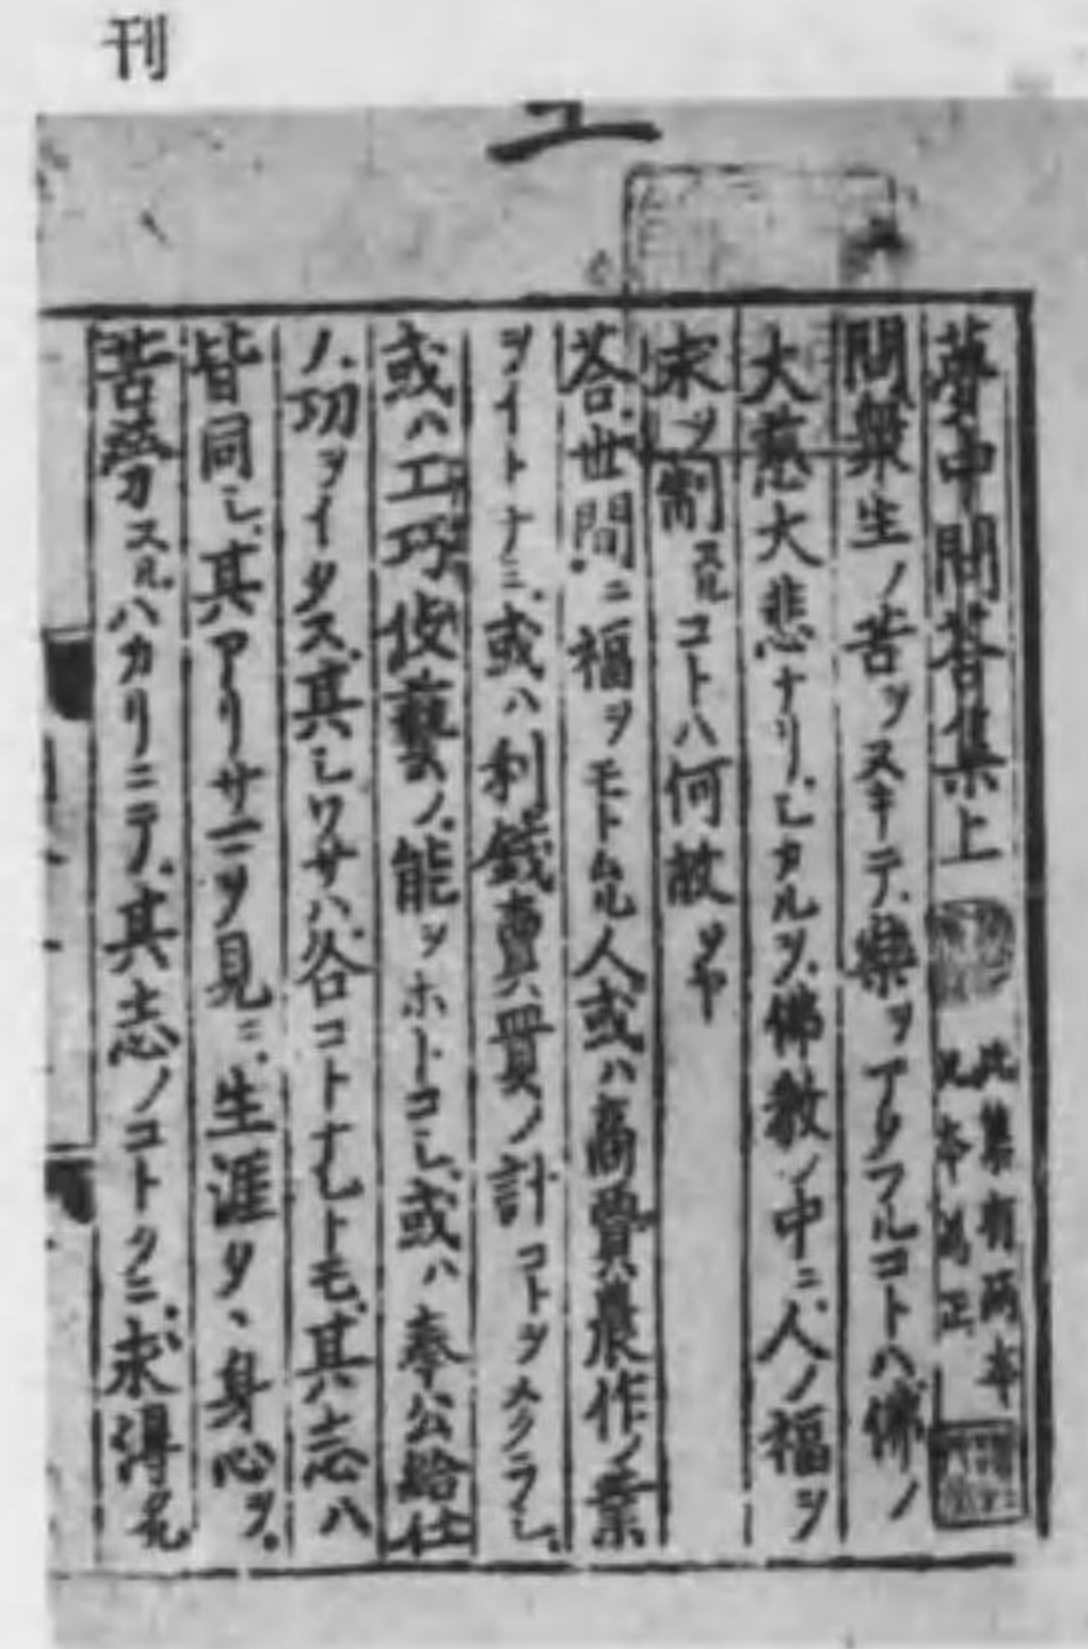 刊
上
夢中問答集上
此集有両本
此本為正
問衆生ノ苦ヲスキテ樂ヲアタフルコトハ佛ノ
大慈大悲ナリシカルヲ佛教ノ中ニ人ノ福ヲ
求ヲ制スルコトハ何故ソヤ
荅世間ニ福ヲモトムル人或ハ商賣農作ノ業
ヲイトナミ或ハ利銭賣買ノ計コトヲメクラシ
或ハ工巧伎藝ノ能ヲホトコシ或ハ奉公給仕
ノ功ヲイタス其シワサハ各コトナレトモ其志ハ
皆同シ其アリサマヲ見ニ生涯タヽ身心ヲ
苦勞スルハカリニテ其志ノコトクニ求得タル